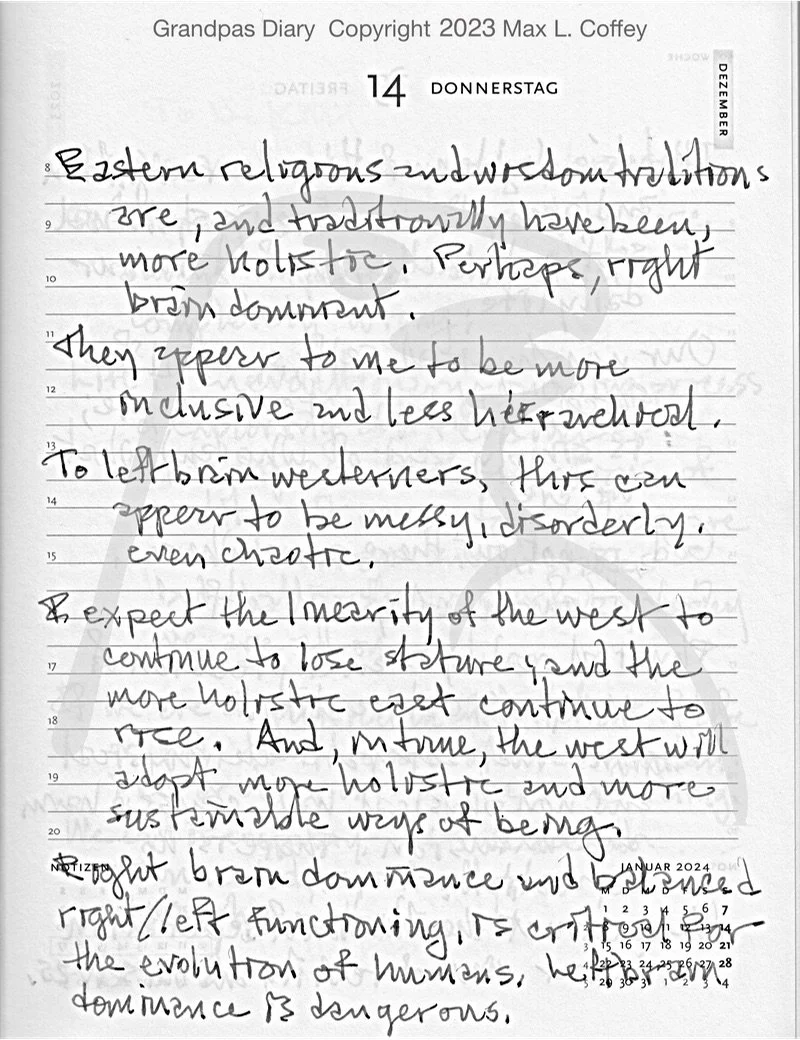 Grandpas Diary Copyright 2023 Max L. Coffey
14 DONNERSTAG
DEZEMBER
8 Eastern religions and wisdom traditions
9 are, and traditionally have been,
more holistic. Perhaps, right
10
brain dominant.
11 They appear to me to be more
12 inclusive and less hierarchical.
13
To left brain westerners, this can
14 appear to be messy, disorderly,
15 even chaotic.
I expect the linearity of the west to
17 continue to lose stature, and the
more holistic east continue to
18 rise. And, in time, the west will
19 adopt more holistic and more
sustainable ways of being.
20
NOTIZEN
JANUAR 2024
Right brain dominance and balanced
M D M D F S S
1 2 3 4 5 6 7
right/left functioning, is critical for
8 9 10 11 12 13 14
the evolution of humans. Left brain
15 16 17 18 19 20 21
22 23 24 25 26 27 28
dominance is dangerous.
29 30 31 1 2 3 4